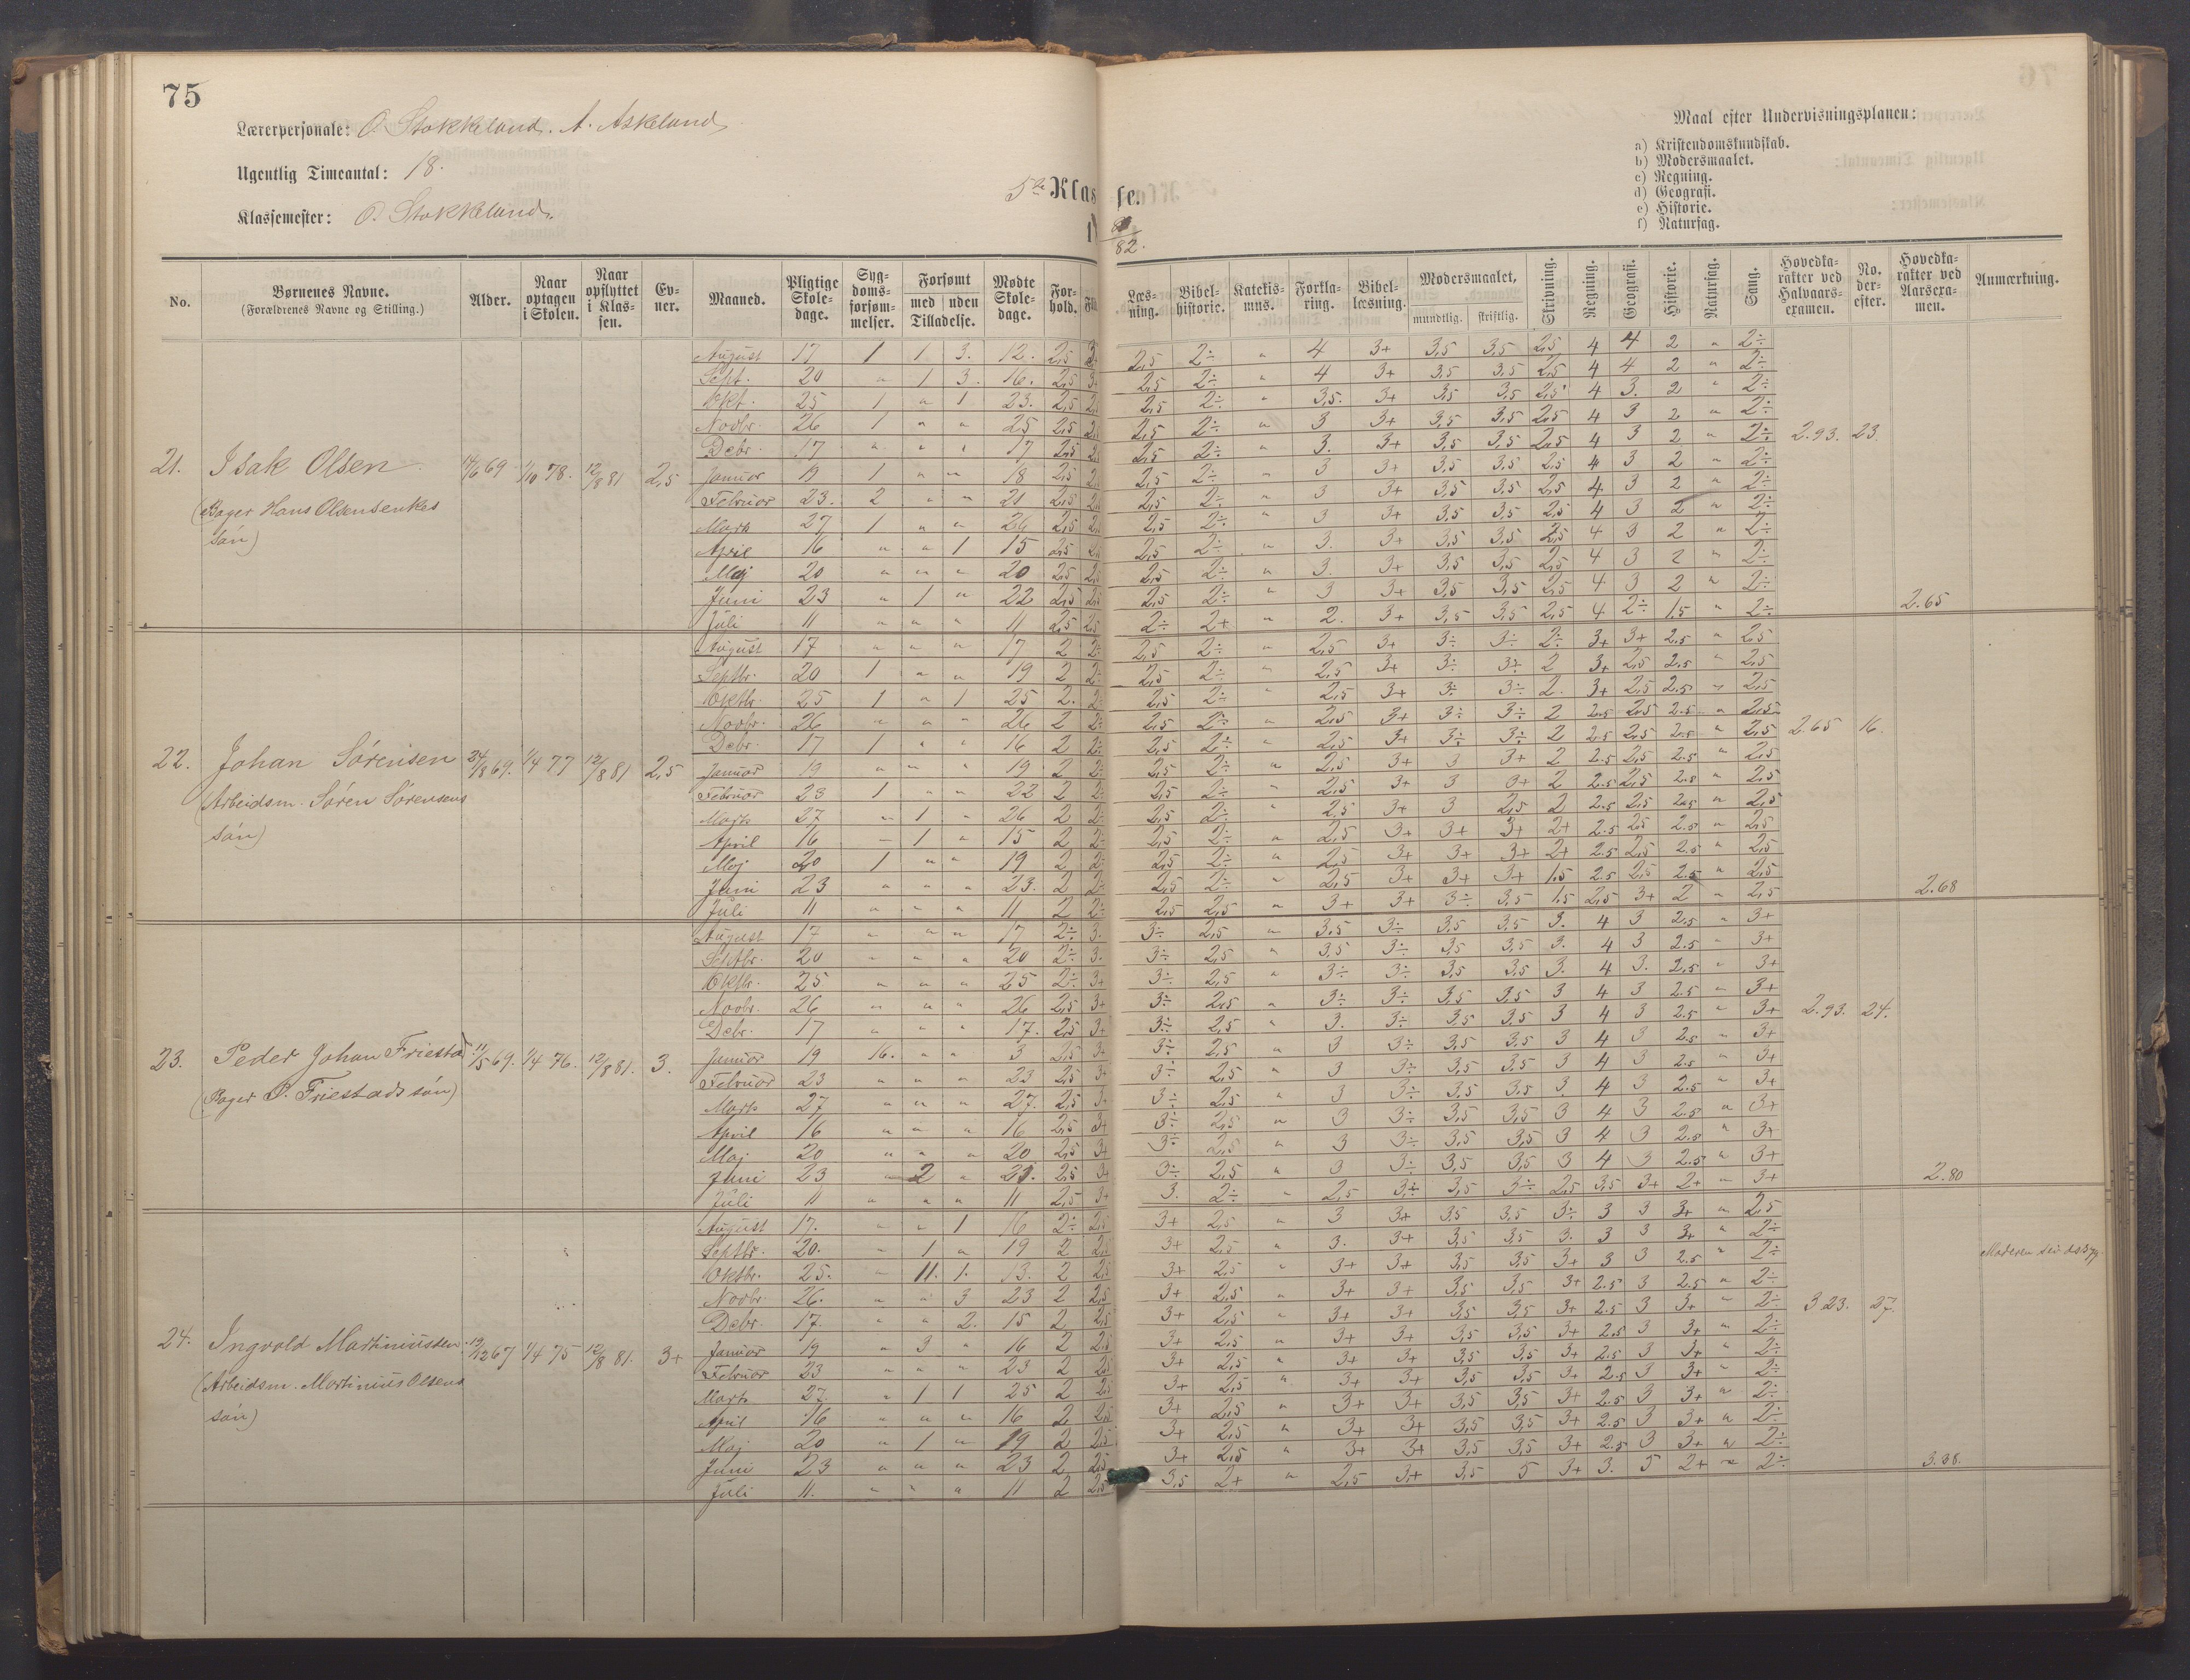 75
Lærerpersonale: O. Stokkeland. A. Askeland
Ugentlig Timeantal: 18.
Klassemester: O. Stokkeland.
5te Klasse.
82.
Maal efter Undervisningsplanen:
a) Kristendomskundskab.
b) Modersmaalet.
c) Regning.
d) Geografi.
e) Historie.
f) Naturfag.
No. Børnenes Navne. (Forældrenes Navne og Stilling.) Alder. Naar optagen i Skolen. Naar opflyttet i Klassen. Evner. Maaned. Pligtige Skoledage. Sygdomsforsømmelser. Forsømt med uden Tilladelse. Mødte Skoledage. Forhold. Læsning. Bibelhistorie. Katekismus. Forklaring. Bibellæsning. Modersmaalet, mundtlig. skriftlig. Skrivning. Regning. Geografi. Historie. Naturfag. Sang. Hovedkarakter ved Halvaarsexamen. No. derefter. Hovedkarakter ved Aarsexamen. Anmærkning.
21. Isak Olsen 1/10 78. 12/8 81 2,5
(Bager Hans Olsens enkes
sön)
August 17 1 1 3. 12. 2,5 2,5 2÷ " 4 3+ 3,5 3,5 2,5 4 4 2 " 2÷
Sept. 20 " 1 3. 16. 2,5 2,5 2÷ " 4 3+ 3,5 3,5 2,5 4 4 2 " 2÷
Okt. 25 1 " 1 23. 2,5 2,5 2÷ " 3,5. 3+ 3,5 3,5 2,5 4 3. 2 " 2÷
Novbr. 26 1 " " 25 2,5 2,5 2÷ " 3 3+ 3,5 3,5 2,5 4 3 2 " 2÷
Debr. 17 " " " 17 2,5 2,5 2÷ " 3. 3+ 3,5 3,5 2,5 4 3 2 " 2÷ 2.93. 23.
Januar 19 1 " " 18 2,5 2,5 2÷ " 3 3+ 3,5 3,5 2,5 4 3 2 " 2÷
Februar 23. 2 " " 21 2,5 2,5 2÷ " 3 3+ 3,5 3,5 2,5 4 3 2 " 2÷
Marts 27 1 " " 26 2,5 2,5 2÷ " 3 3+ 3,5 3,5 2,5 4 3 2 " 2÷
April 16 " " 1 15 2,5 2,5 2÷ " 3. 3+ 3,5 3,5 2,5 4 3 2 " 2÷
Maj 20 " " " 20 2,5 2,5 2,5 2÷ " 3. 3+ 3,5 3,5 2,5 4 3 2 " 2÷
Juni 23 " 1 " 22 2,5 2,5 2,5 2÷ " 3 3+ 3,5 3,5 2,5 4 3 2 " 2÷
Juli 11 " " " 11 2,5 2,5 2÷ 2+ " 2. 3+ 3,5 3,5 2,5 4 2÷ 1,5 " 2÷ 2.65
22. Johan Sörensen 24/8 69. 1/4 77 12/8 81 2,5
(Arbeidsm. Sören Sörensens
sön)
August 17 " " " 17 2 2÷ 2,5 2÷ " 2,5 3+ 3÷ 3÷ 2÷ 3+ 3+ 2.5 " 2,5
Septbr. 20 1 " " 19 2 2÷ 2,5 2÷ " 2,5 3+ 3÷ 3÷ 2 3+ 2,5 2.5 " 2,5
Oktbr. 25 1 " 1 25 2. 2÷ 2,5 2÷ " 2,5 3+ 3÷ 3÷ 2. 3+ 2,5 2.5 " 2,5
Novbr. 26 " " " 26 2 2÷ 2,5 2÷ " 2,5 3+ 3÷ 3÷ 2 2.5 2,5 2.5 " 2,5
Debr. 17 1 " " 16 2 2÷ 2,5 2÷ " 2,5 3+ 3÷ 3÷ 2 2.5 2,5 2.5 " 2,5 2.65 16.
Januar 19 " " " 19 2 2÷ 2,5 2÷ " 2,5 3+ 3 3+ 2 2.5 2,5 2.5 " 2,5
Februar 23 1 " " 22 2 2÷ 2,5 2÷ " 2,5 3+ 3 3+ 2 2.5 2,5 2.5 " 2,5
Marts 27 " 1 " 26 2 2÷ 2,5 2÷ " 2,5 3+ 3 2,5 2 2.5 2,5 2.5 " 2,5
April 16 " 1 " 15 2 2÷ 2,5 2÷ " 2,5 3+ 3+ 3+ 2+ 2.5 2,5 2.5 " 2,5
Maj 20 1 " " 19 2 2÷ 2,5 2÷ " 2,5 3+ 3+ 3+ 2+ 2.5 2,5 2.5 " 2,5
Juni 23 " " " 23. 2 2÷ 2,5 2÷ " 2,5 3+ 3+ 3+ 1,5 2.5 2,5 2.5 " 2,5
Juli 11 " " " 11 2 2÷ 2,5 2,5 " 3+ 3+ 3÷ 3,5 1,5 2,5 3+ 2 " 2,5 2.68
23. Peder Johan Friestad 11/5 69. 1/4 76. 12/8 81. 3.
(Bager P. Friestads sön)
August 17 " " " 17 2÷ 3. 3÷ 2,5 " 3,5 3÷ 3,5 3,5 3. 4 3 2.5 " 3+
Septbr. 20 " " " 20 2÷ 3. 3÷ 2,5 " 3,5 3÷ 3,5 3,5 3. 4 3 2.5 " 3+
Oktbr. 25 " " " 25 2÷ 3+ 3÷ 2,5 " 3÷ 3÷ 3,5 3,5 3. 4 3. 2.5 " 3+
Novbr. 26 " " " 26 2,5 3+ 3÷ 2,5 " 3÷ 3÷ 3,5 3,5 3 4 3 2.5 " 3+
Debr. 17 " " " 17. 2,5 3+ 3÷ 2,5 " 3. 3÷ 3,5 3,5 3 4 3 2.5 " 3+ 2.93. 24.
Januar 19 16. " " 3 2,5 3+ 3÷ 2,5 " 3 3÷ 3,5 3,5 3 4 3 2.5 " 3+
Februar 23 " " " 23 2,5 3+ 3÷ 2,5 " 3 3÷ 3,5 3,5 3 4 3 2.5 " 3+
Marts 27 " " " 27. 2,5 3+ 3÷ 2,5 " 3 3÷ 3,5 3,5 3. 4 3 2.5 " 3+
April 16 " " " 16 2,5 3+ 3÷ 2,5 " 3 3÷ 3,5 3,5 3 4 3 2.5 " 3+
Maj 20 " " " 20 2,5 3+ 3÷ 2,5 " 3 3÷ 3,5 3,5 3 4 3 2.5 " 3+
Juni 23 " 2 " 21. 2,5 3+ 3÷ 2,5 " 3 3÷ 3,5 3,5 3 4 3 2.5 " 3+
Juli 11 " " " 11 2,5 3+ 3. 2÷ " 2,5 3÷ 3,5 3÷ 2,5 3,5 3+ 2+ " 3+ 2.80
24. Ingvald Martiniussen 1/4 75 12/8 81. 3+
(Arbeidsm. Martinius Olsens
sön)
August 17. " " 1 16 2÷ 2,5 3+ 2,5 " 3 3+ 3,5 3,5 3÷ 3 3 3+ " 2,5
Septbr. 20. " 1 " 19 2 2,5 3+ 2,5 " 3. 3+ 3,5 3,5 3. 3 3 3+ " 2÷
Oktbr. 25. " 11. 1. 13. 2 2,5 3+ 2,5 " 3+ 3+ 3,5 3,5 3+ 3 3 2.5 " 2÷ Moderen
Novbr. 26. " " 3 23 2 2,5 3+ 2,5 " 3+ 3+ 3,5 3,5 3+ 2.5 3 2.5 " 2÷
Debr. 17. " " 2. 15 2 2,5 3+ 2,5 " 3+ 3+ 3,5 3,5 3+ 2.5 3 3+ " 2÷ 3.23. 27.
Januar 19 " 3 " 16 2 2,5 3+ 2,5 " 3+ 3+ 3,5 3,5 3+ 2.5 3 3+ " 2÷
Februar 23 " " " 23 2 2,5 3+ 2,5 " 3+ 3+ 3,5 3,5 3+ 2.5 3 3+ " 2÷
Marts 27. " 1 1 25 2 2,5 3+ 2,5 " 3+ 3+ 3,5 3,5 3+ 2.5 3 3+ " 2÷
April 16 " " " 16 2 2,5 3+ 2,5 " 3+ 3+ 3,5 3,5 3+ 2.5 3 3+ " 2÷
Maj 20 " 1 " 19 2 2,5 3+ 2,5 " 3+ 3+ 3,5 3,5 3+ 2.5 3 3+ " 2÷
Juni 23 " " " 23 2 2,5 3+ 2,5 " 3+ 3+ 3,5 3,5 3+ 2.5 3 3+ " 2÷
Juli 11. " " " 11 2 2,5 3,5 2+ " 2,5 3+ 3,5 5 3+ 3. 5 2+ " 2÷ 3.38.